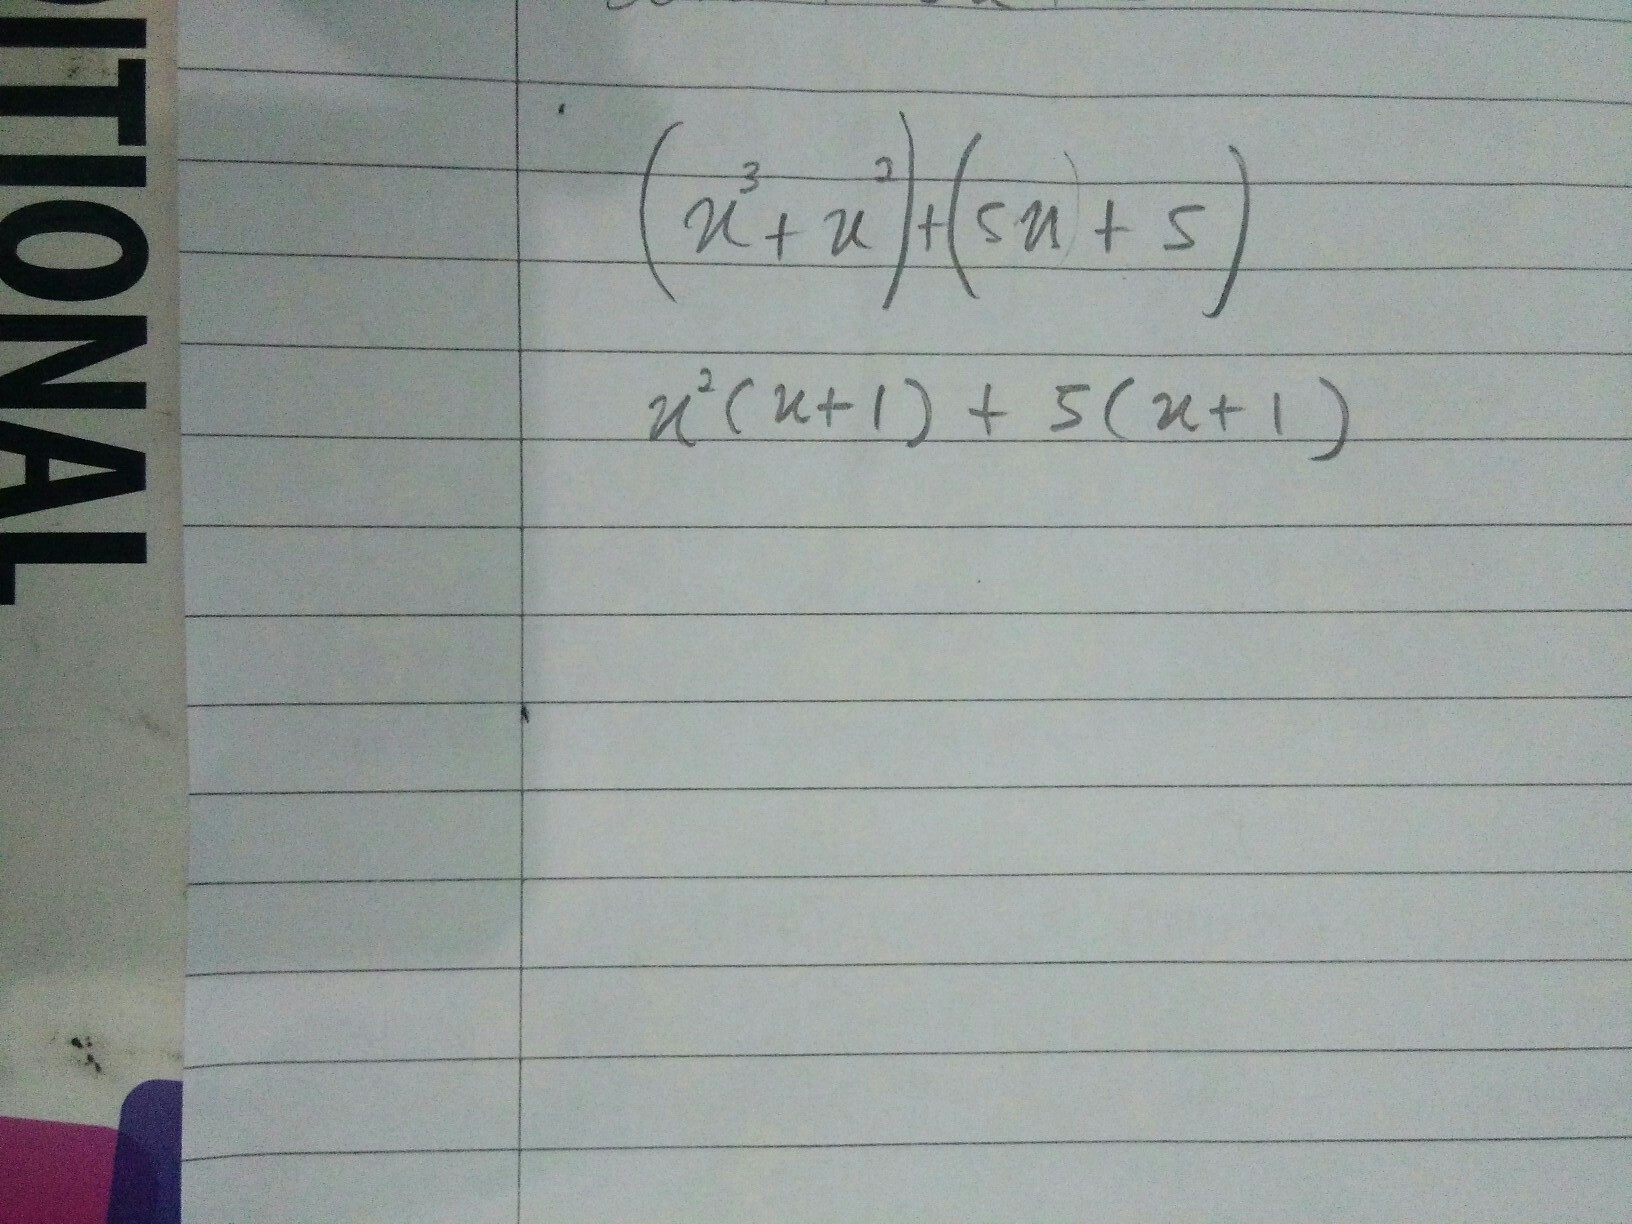 DITIONAL
(x³+x²)+(5x)+5)
x²(x+1) + 5(x+1)